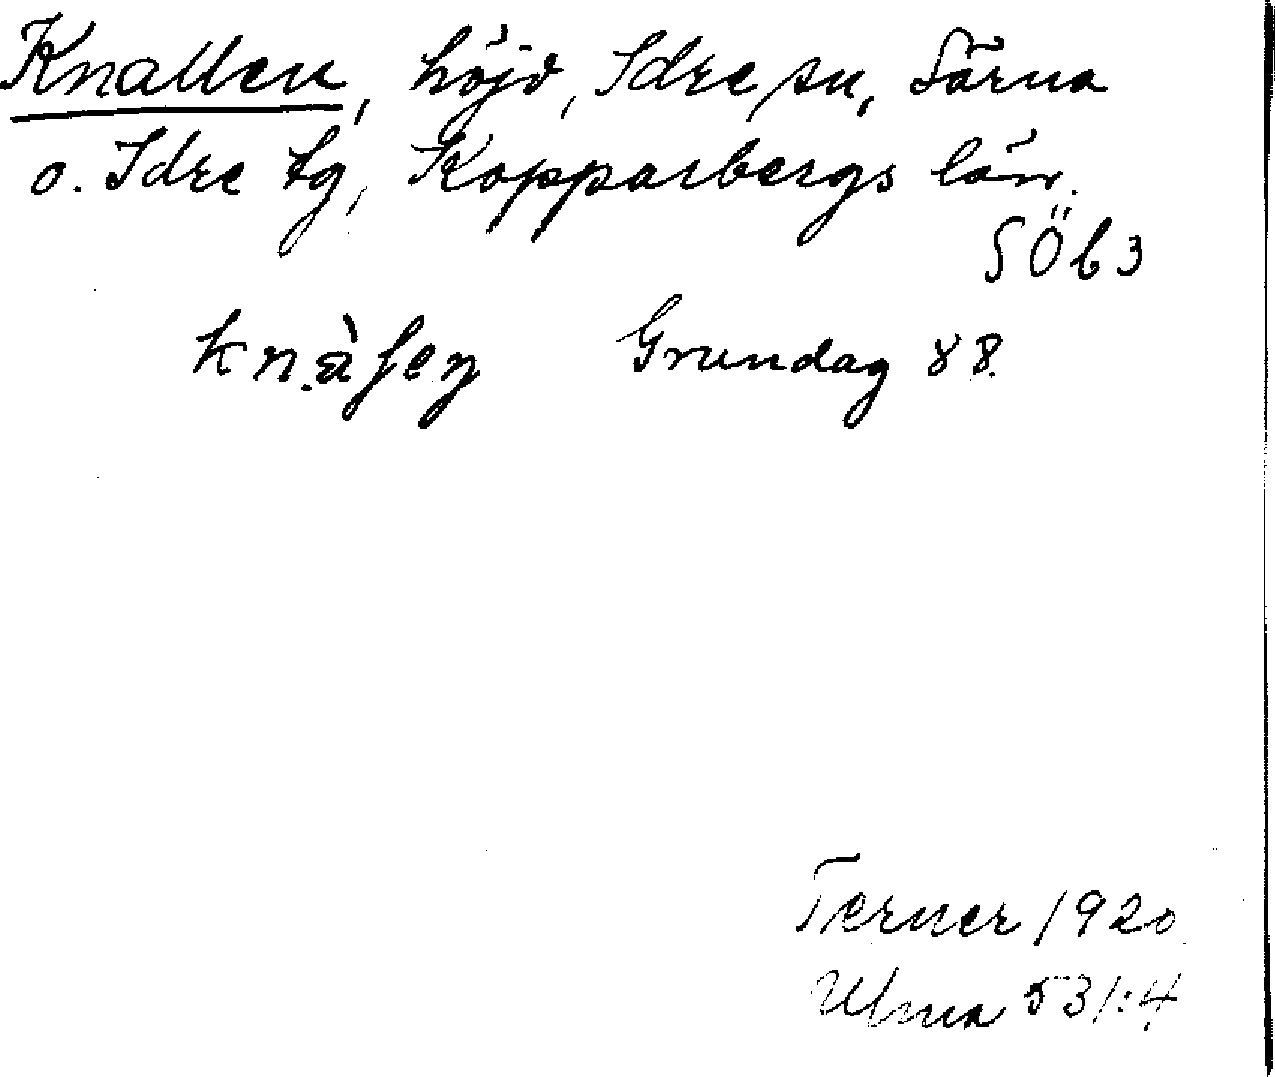 Knallen, höjd, Idre sn, Särna
o. Idre tg, Kopparbergs län.
SÖb3
Grundag 88.
Terner 1920
Ulma 531:4